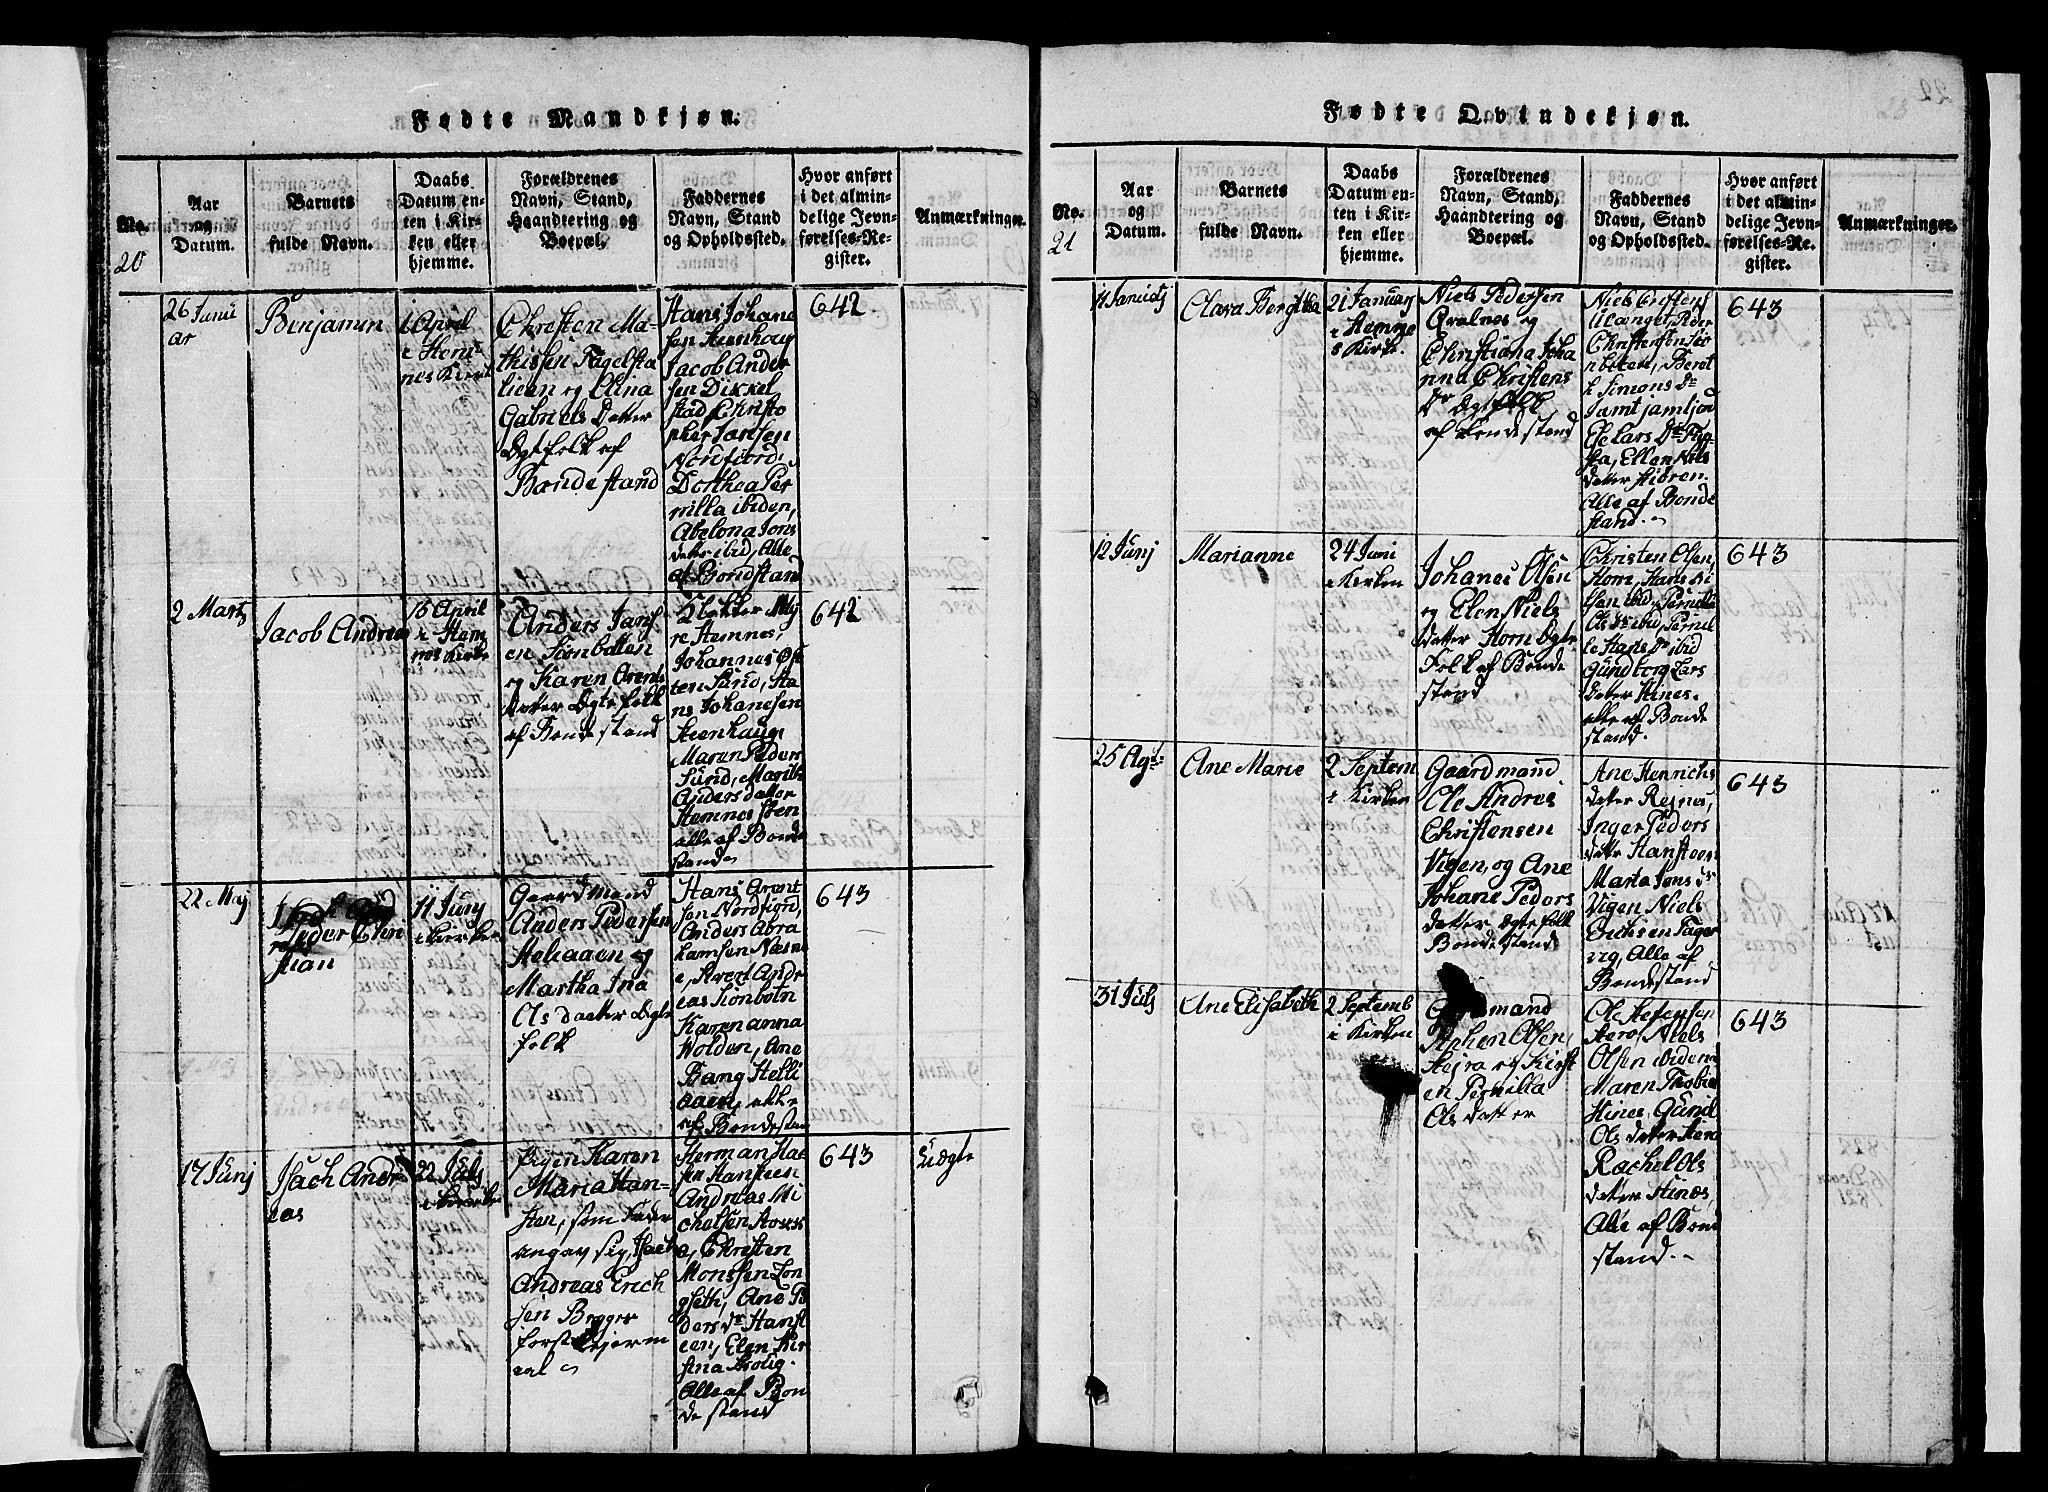 Fødte Mandkjøn.
No.
20
Aar
og
Datum.
Barnets
fulde Navn.
Daabs
Datum en-
ten i Kir-
ken eller
hjemme.
Forældrenes
Navn, Stand,
Haandtering og
Boepæl.
Faddernes
Navn, Stand
og Opholdssted.
Hvor anført
i det almin-
delige Jevn-
førelses-Re-
gister.
Anmærkninger.
26 Janu
ar
Benjamin
1 April
i Hem
nes Kirke
Christen Ma-
thissen Fagelsta
lieen og Elina
Gabriels Datter
Ægtefolk af
Bondestand
Hans Johane
sen Steenhaug
Jacob Ander
sen Dikkel
stad, Christo
pher Jansen
Nordfiord,
Dorthea Per
nilla ibiden,
Abelona Jons
datter ibid, Alle
af Bondstand
642
2 Marts
Jacob Andreas
16 April
i Hem
nes Kirke
Anders Jans
en Sionbotten
og Karen Arent
datter Ægtefolk
af Bondestand
Klokker My
re Hemnes,
Johannes
ten Sund, Ha
ns Johanesen
Steenhaug
Maren Peders
Sund, Marith
Anders datter
Hemnes
alle af Bonde
stand
642
22 Maj
Peder Chri
stian
11 Junj
i Kirken
Gaardmand
Anders Pedersen
Heliaaen og
Martha Ina
Ols datter Ægte
folk
Hans Arent
sen Nordfior,
Anders Abra
hamsen Næsne
e, Arent Andr
eas Sionbotn
Karen anna
Wolden, Ane
Bang Helli
aaen, alle
af Bondestan
643
17 Junj
Isach Andr
eas
22 Julj
i Kirke
Pigen Karen
Maria Han-
sen, som Fader
angav sig Isach
Andreas Erich
sen Bygger
første Lejerm
aal
Herman Ha
sen Hansteen
Andreas Mi
chelsen
Christen
Monssen Lon
gseth, Ane P
ders Dr Hanst
een, Elen Kir
stina
Alle af Bon
de stand
643
Uægte
Fødte Qvindekjøn.
22
No.
21
Aar
og
Datum.
Barnets
fulde Navn.
Daabs
Datum en-
ten i Kir-
ken eller
hjemme.
Forældrenes
Navn, Stand,
Haandtering og
Boepæl.
Faddernes
Navn, Stand
og Opholdssted.
Hvor anført
i det almin-
delige Jevn-
førelses-Re-
gister.
Anmærkninger.
Clara Bergitha
21 Januarj
i Hemne
s Kirke.
Niels Pedersen
Qvalnes og
Christiana Joha
nna Christens
Dr Ægtefolk
af Bondestand
Christensen Sio
nboten, Berit
h Simons Dr
Lars Dr
Ellen Niels
detter
Alle af Bonde
stand.
643
12 Junj
Marianne
24 Juni
i Kirken
Johanes Olsen
og Elen Niels
datter Horn Ægte
Folk af Bonde
stand
Christen Olsen,
Horn, Hans Ni
lsen ibid, Pernilla
Ols Dr ibid, Pernil
le Hans Dr ibid
Gundborg Lars
Datter Hines.
alle af Bonde
stand.
643
25 Agt.
Ane Marie
2 Septem
i Kirken
Gaardmand
Ole Andreas
Christensen
Vigen, og Ane
Johane Peders
datter Ægtefolk
Bondestand
Ane Henrichs
datter Reines,
Inger Peders
datter Hansteen
Marta Jons Dr
Vigen Niels
Erichsen Fager
eng, Alle af
Bondestand
643
31 Julj
Ane Elisabeth
2 Septemb
i Kirken
Gaardmand
Stephen Olsen,
og Kirst
en Pernilla
Ols datter
Ole Stefensen
Niels
Olsen ibiden
Maren Thobia
Hines, Gunil
Ols datter
Rachel Ols
datter Hines
Alle af Bond
stand.
643